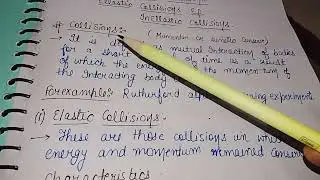 Elastic Collisions &
Inelastic Collisions
# Collisions:- (Momentum or kinetic conserv
→ It is as mutual Interaction of bodies
for a short of time as a result
of which the ener the momentum of
the Interacting body
For example:- Rutherford experiment
(1) Elastic Collisions:-
→ These are those collisions in which
energy and momentum remained conser
Characteristics